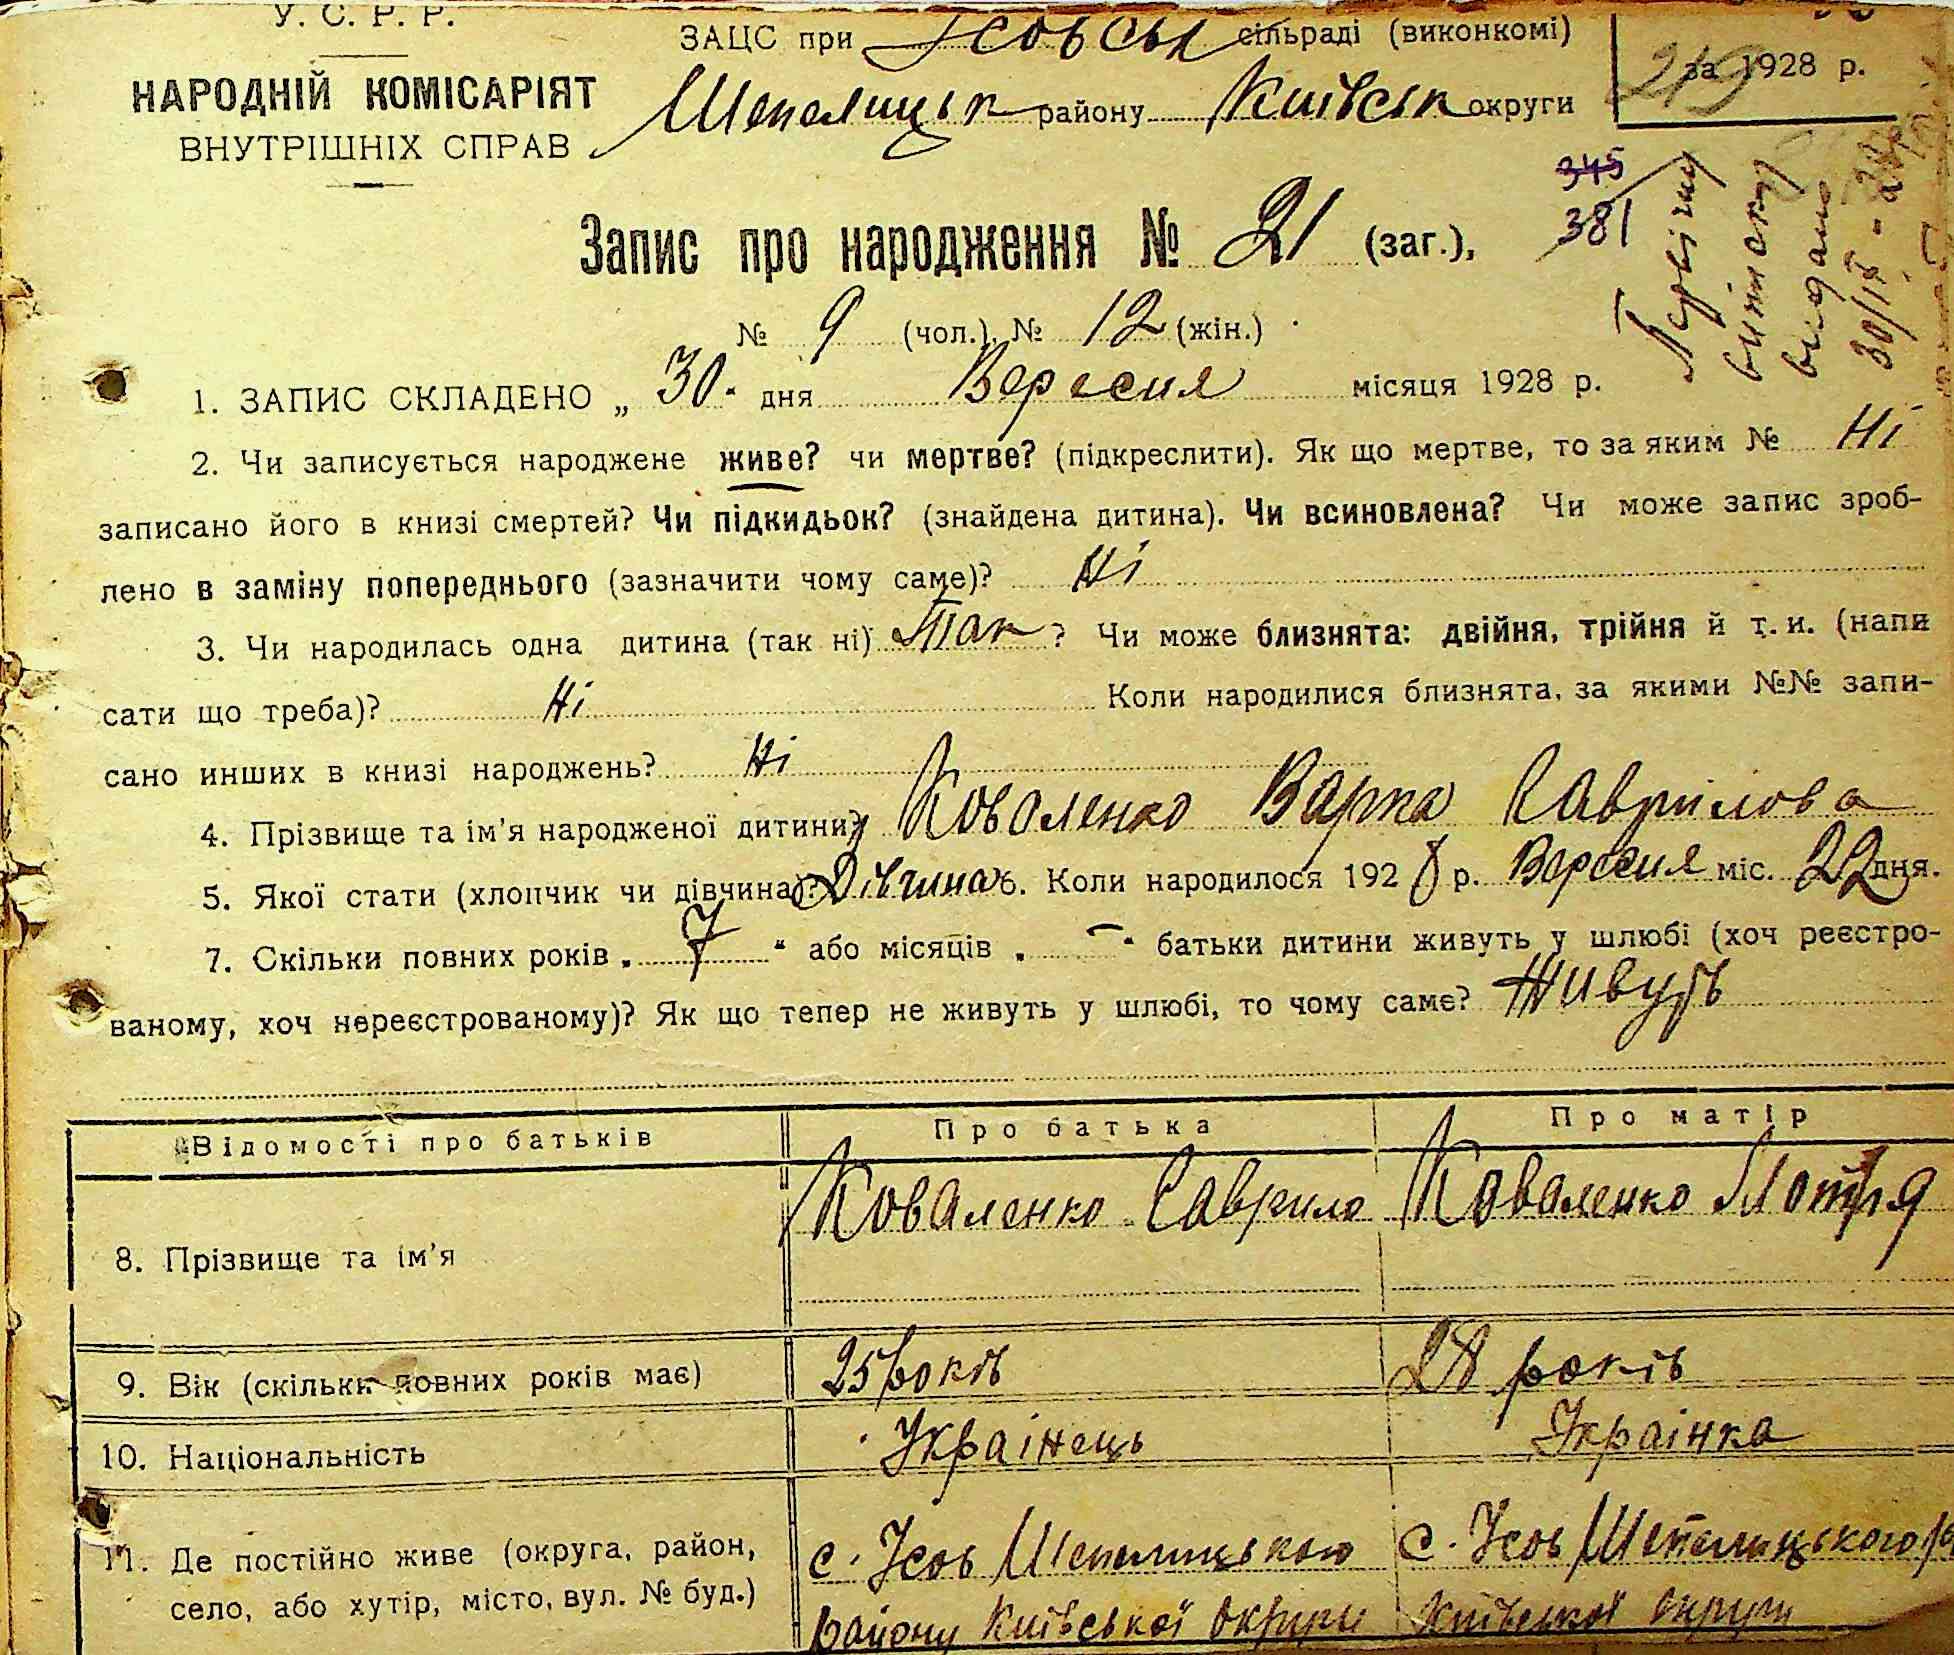 У. С. Р. Р.
НАРОДНІЙ КОМІСАРІЯТ
ВНУТРІШНІХ СПРАВ
ЗАЦС при Усовськ сільраді (виконкомі)
Шепелицьк району Київськ округи
219
за 1928 р.
345
381
Первічну
виписку
видано
30/ІХ - 28 р
Запис про народження № 21 (заг.),
№ 9 (чол.), № 12 (жін.)
1. ЗАПИС СКЛАДЕНО „ 30 " дня Вересня місяця 1928 р.
2. Чи записується народжене живе? чи мертве? (підкреслити). Як що мертве, то за яким № Ні
записано його в книзі смертей? Чи підкидьок? (знайдена дитина). Чи всиновлена? Чи може запис зроб-
лено в заміну попереднього (зазначити чому саме)? Ні
3. Чи народилась одна дитина (так ні) Так ? Чи може близнята: двійня, трійня й т. и. (напи
сати що треба)? Ні Коли народилися близнята, за якими №№ запи-
сано инших в книзі народжень? Ні
4. Прізвище та ім'я народженої дитини? Коваленко Варка Гаврилова
5. Якої стати (хлопчик чи дівчина)? Дівчина 6. Коли народилося 1928 р. Вересня міс. 22 дня.
7. Скільки повних років „ 7 " або місяців „ — " батьки дитини живуть у шлюбі (хоч реєстро-
ваному, хоч нереєстрованому)? Як що тепер не живуть у шлюбі, то чому саме? Живуть
Відомості про батьків Про батька Про матір
8. Прізвище та ім'я Коваленко Гаврило Коваленко Мотря
9. Вік (скільки повних років має) 25 років 28 років
10. Національність Українець Українка
11. Де постійно живе (округа, район,
село, або хутір, місто, вул. № буд.)
с. Усов Шепелицького
району Київської Округи
с. Усов Шепелицького р
Київської Округи